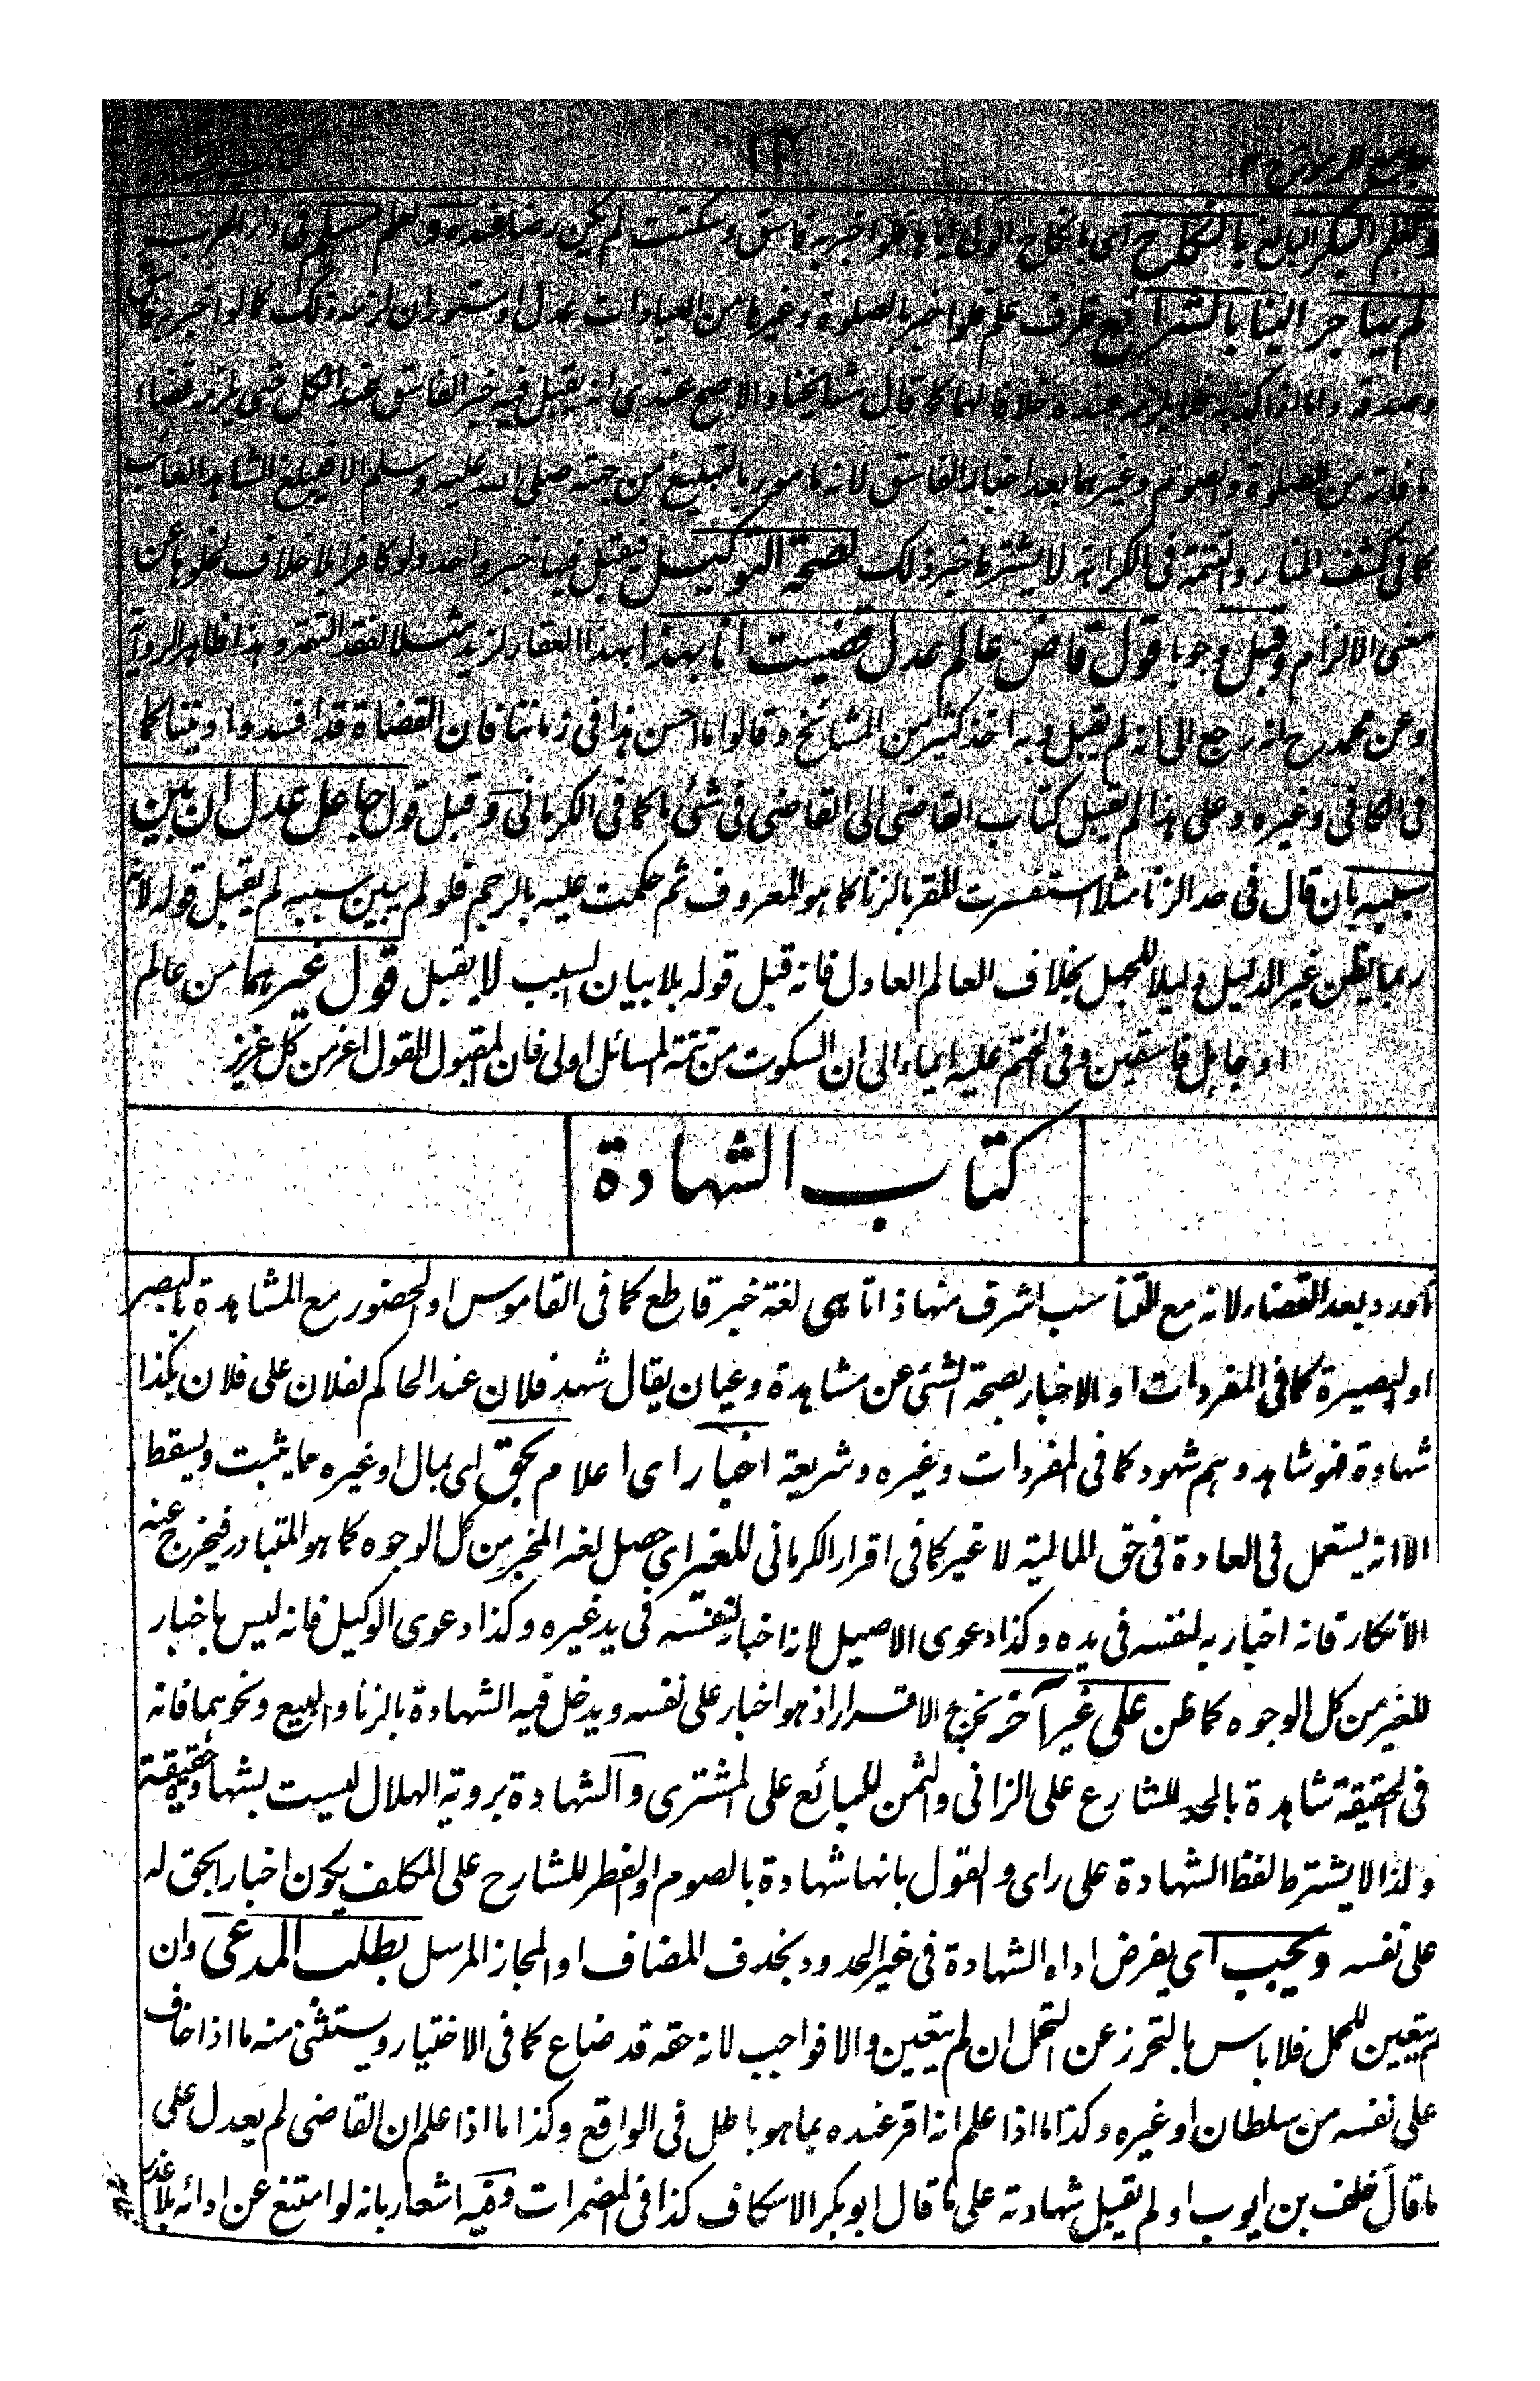 جامع الرموز
وعلم البكر البالغ بالنكاح اى بانكاح الولى اياها فلو اخبر به فاسق وسكتت لم يكن رضا عنده وعلم مسلم فى دار الحرب
لم يهاجر الينا بالشرائع ظرف علم فلو اخبر بالصلوة وغيرها من العبادات عدل او مستوران لزمه ذلك كما لو اخبر به فاسق
وصدقه واما اذا كذبه فلا يلزم عنده خلافا لهما كما قال مشايخنا والاصح عندى انه يقبل فيه خبر الفاسق عند الكل حتى يلزمه قضاء
ما فاته من الصلوة والصوم وغيرهما بعد اخبار الفاسق لانه مامور بالتبليغ من جهته صلى الله عليه وسلم الا فليبلغ الشاهد الغائب
كما فى كشف المنار والتتمة فى الكراهة لا يشترط خبر ذلك لصحة التوكيل فيقبل فيها خبر واحد ولو كافرا بلا خلاف لخلوها عن
معنى الالزام وقبل وجوبا قول قاض عالم عدل قضيت انا بهذا بهذا العقار لزيد مثلا لفقد التهمة وهذا ظاهر الرواية
وعن محمد رح انه رجع الى انه لم يقبل وبه اخذ كثير من المشائخ وقالوا ما احسن هذا فى زماننا فان القضاة قد افسدوا ديننا كما
فى الكافى وغيره وعلى هذا لم يقبل كتاب القاضى الى القاضى فى شئ ما كما فى الكرمانى وقبل قول جاهل عدل ان بين
سببه بان قال فى حد الزنا مثلا استفسرت المقر بالزنا كما هو المعروف ثم حكمت عليه بالرجم فلو لم يبين سببه لم يقبل قوله لانه
ربما يظن غير الدليل دليلا للجهل بخلاف العالم العادل فانه قبل قوله بلا بيان السبب لا يقبل قول غيرهما من عالم
او جاهل فاسقين وفى الختم عليه ايماء الى ان السكوت من تتمة المسائل اولى فان المقبول القول اعز من كل عزيز
كتاب الشهادة
اورد بعد القضاء لانه مع التناسب اشرف منها ذاتا هى لغة خبر قاطع كما فى القاموس او الحضور مع المشاهدة بالبصر
او البصيرة كما فى المفردات او الاخبار بصحة الشئ عن مشاهدة وعيان يقال شهد فلان عند الحاكم لفلان على فلان بكذا
شهادة فهو شاهد وهم شهود كما فى المفردات وغيره وشريعة اخبار اى اعلام بحق اى بمال او غيره مما يثبت ويسقط
الا انه يستعمل فى العادة فى حق المالية لا غير كما فى اقرار الكرمانى للغير اى حصل لغير المخبر من كل الوجوه كما هو المتبادر فيخرج عنه
الانكار فانه اخبار به لنفسه فى يده وكذا دعوى الاصيل لانه اخبار لنفسه فى يد غيره وكذا دعوى الوكيل فانه ليس باخبار
للغير من كل الوجوه كما ظن على غير آخر يخرج الاقرار اذ هو اخبار على نفسه ويدخل فيه الشهادة بالزنا والبيع ونحوهما فانه
فى الحقيقة شاهدة بالحد للشارع على الزانى والثمن للبائع على المشترى والشهادة بروية الهلال ليست بشهادة حقيقة
ولذا لا يشترط لفظ الشهادة على راى والقول بانها شهادة بالصوم او الفطر للشارح على المكلف يكون اخبارا بحق له
على نفسه ويجب اى يفرض اداء الشهادة فى غير الحدود بحذف المضاف او المجاز المرسل بطلب المدعى وان
لم يتعين للتحمل فلا باس بالتحرز عن التحمل ان لم يتعين والا فواجب لانه حقه قد ضاع كما فى الاختيار ويستثنى منه ما اذا خاف
على نفسه من سلطان او غيره وكذا ما اذا علم انه اقر عنده بما هو باطل فى الواقع وكذا ما اذا علم ان القاضى لم يعدل على
ما قال خلف بن ايوب او لم يقبل شهادته على ما قال ابو بكر الاسكاف كذا فى المضمرات وفيه اشعار بانه لو امتنع عن ادائه بلا عذر